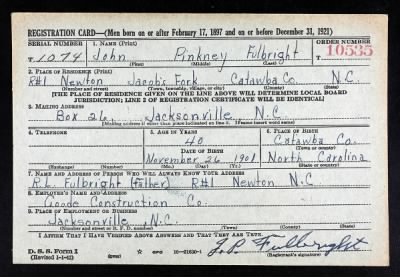 REGISTRATION CARD—(Men born on or after February 17, 1897 and on or before December 31, 1921)
SERIAL NUMBER 1. NAME (Print) ORDER NUMBER
T 1074 John Pinkney Fulbright 10535
(First) (Middle) (Last)
2. PLACE OF RESIDENCE (Print)
R#1 Newton Jacob's Fork Catawba Co. N.C.
(Number and street) (Town, township, village, or city) (County) (State)
[THE PLACE OF RESIDENCE GIVEN ON THE LINE ABOVE WILL DETERMINE LOCAL BOARD
JURISDICTION; LINE 2 OF REGISTRATION CERTIFICATE WILL BE IDENTICAL]
3. MAILING ADDRESS
Box 26, Jacksonville N.C
[Mailing address if other than place indicated on line 2. If same insert word same]
4. TELEPHONE 5. AGE IN YEARS 6. PLACE OF BIRTH
40 Catawba Co.
DATE OF BIRTH (Town or county)
November 26 1901 North Carolina
(Exchange) (Number) (Mo.) (Day) (Yr.) (State or country)
7. NAME AND ADDRESS OF PERSON WHO WILL ALWAYS KNOW YOUR ADDRESS
R.L. Fulbright (father) R#1 Newton N.C
8. EMPLOYER'S NAME AND ADDRESS
Goode Construction Co.
9. PLACE OF EMPLOYMENT OR BUSINESS
Jacksonville N.C.
(Number and street or R. F. D. number) (Town) (County) (State)
I AFFIRM THAT I HAVE VERIFIED ABOVE ANSWERS AND THAT THEY ARE TRUE.
D. S. S. Form 1
(Revised 1-1-42) (over) GPO 16—21630-1
J.P. Fulbright
(Registrant's signature)